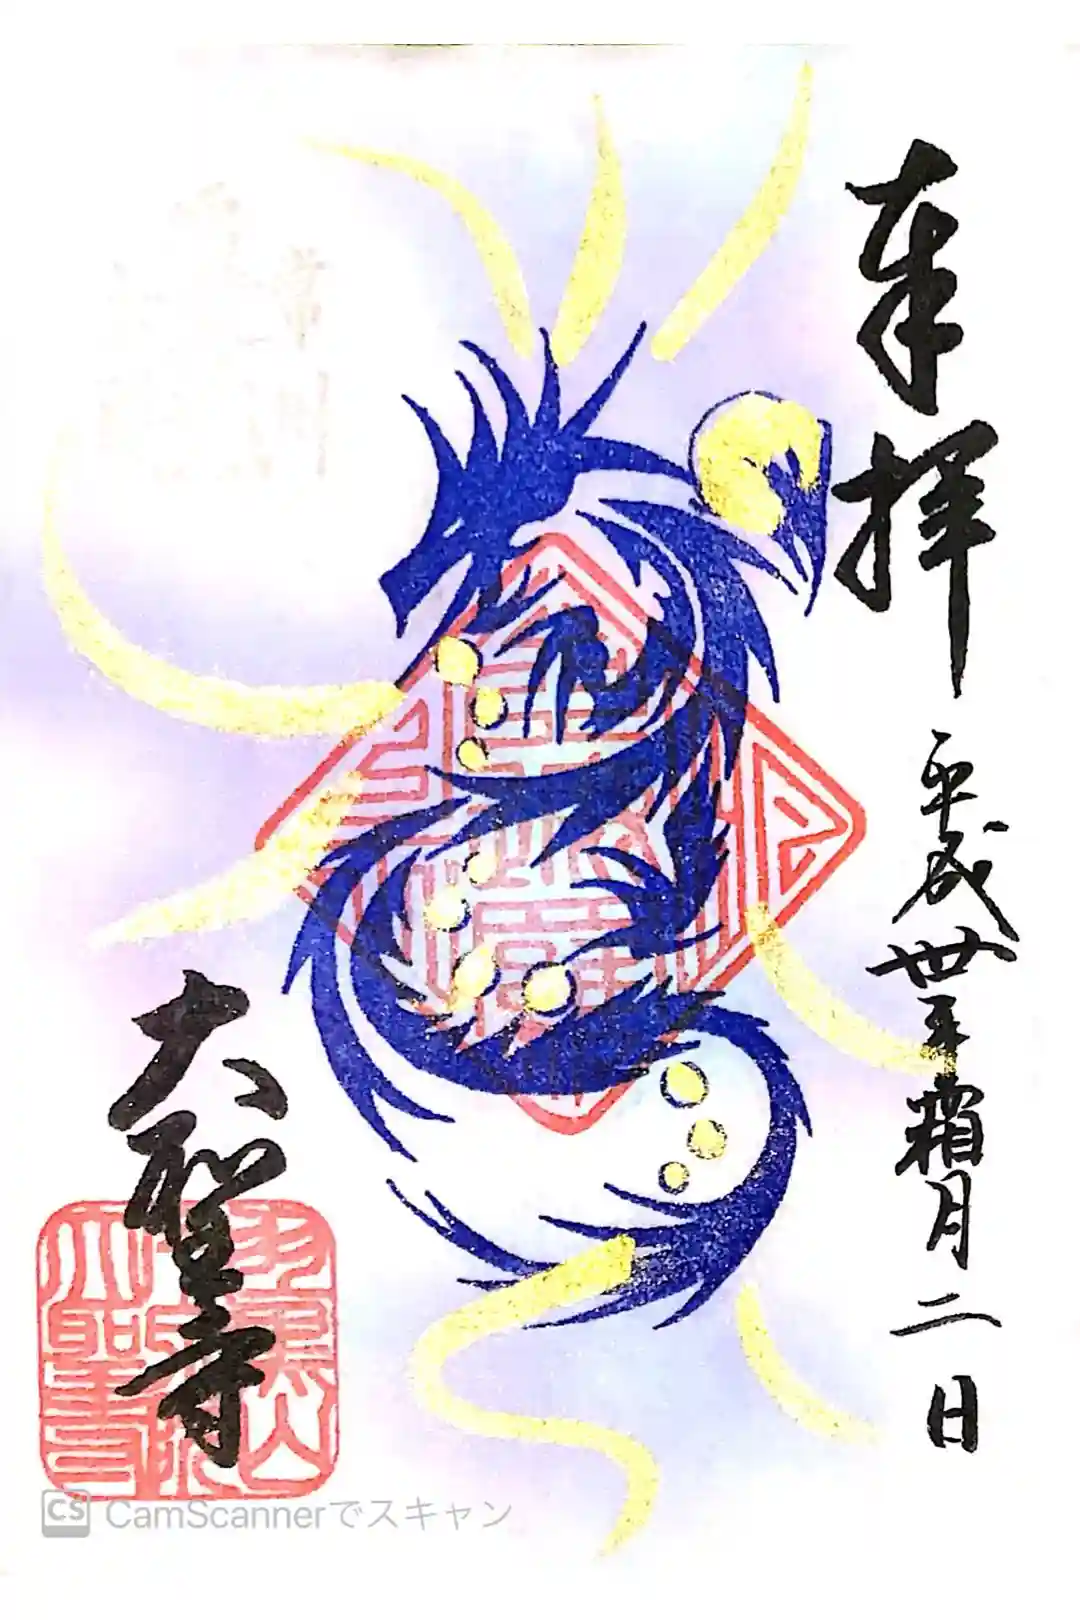 奉拝
平成卅年霜月二日
大聖寺
羽黒山
大聖寺
CS CamScannerでスキャン